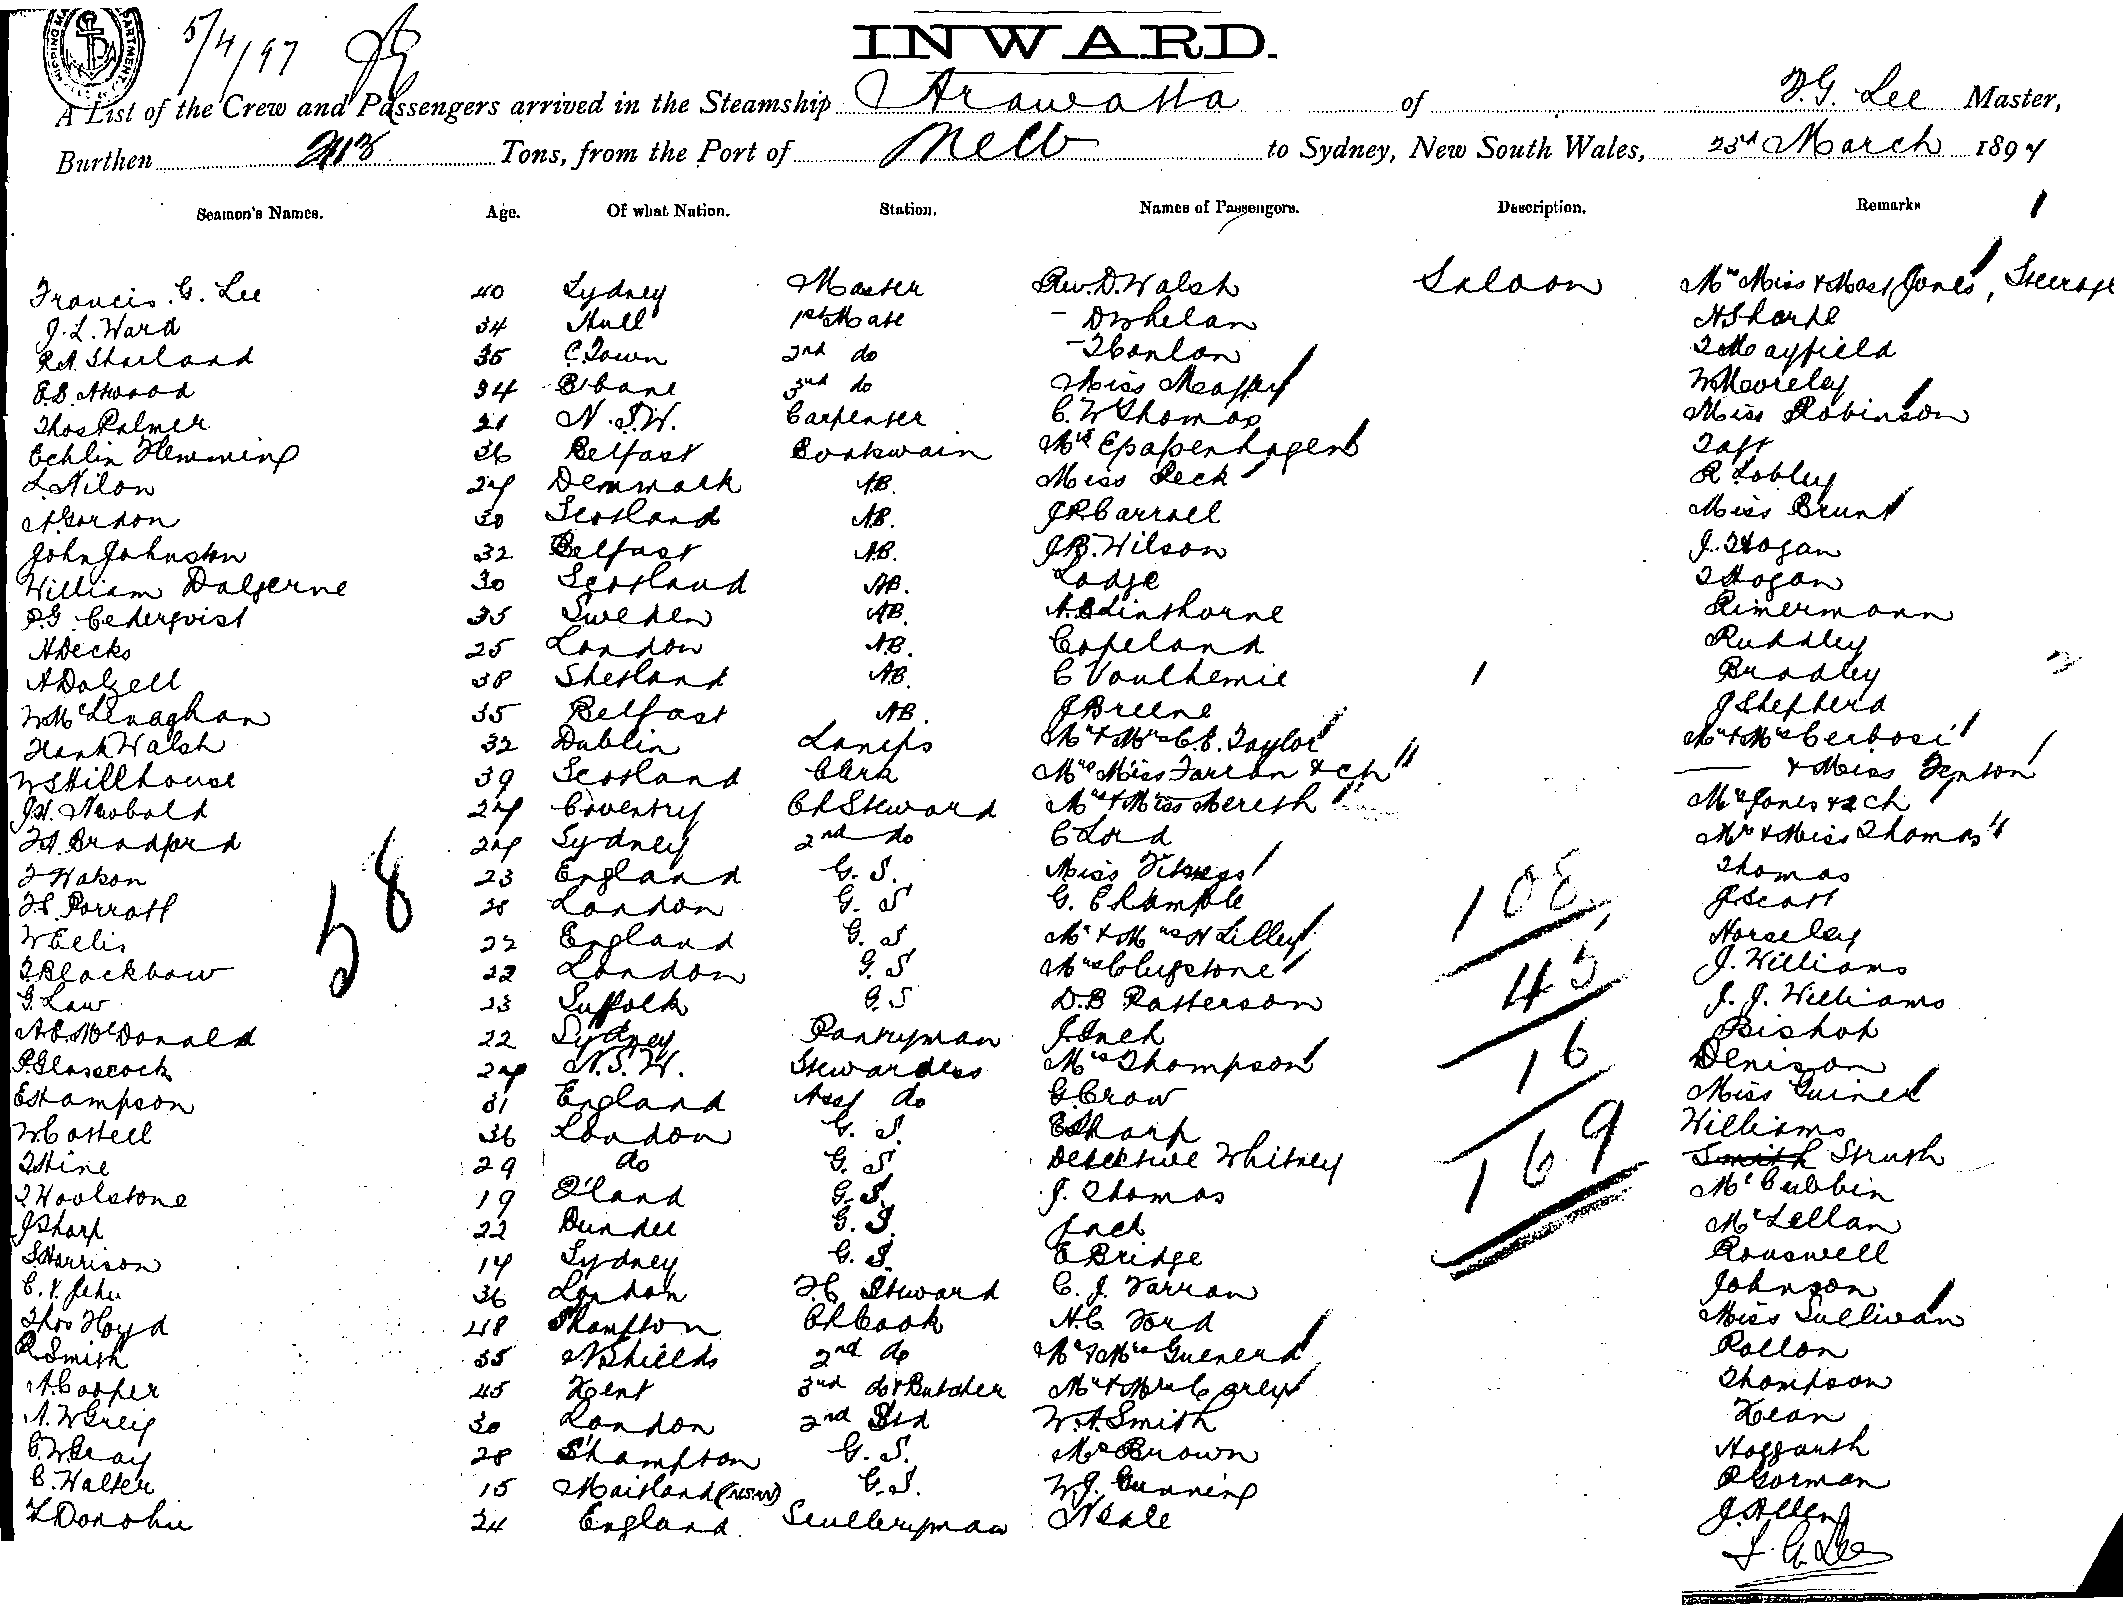 5/4/97
INWARD.
A List of the Crew and Passengers arrived in the Steamship Arawatta of F.G. Lee Master,
Burthen Tons, from the Port of Melb to Sydney, New South Wales, 23rd March 1897
Seamen's Names. Age. Of what Nation. Station. Names of Passengers. Description. Remarks
Francis. G. Lee 40 Sydney Master Rev. D. Walsh Saloon Mrs Miss & Mast Jones, Steerage
J. L. Ward 34 Hull 1st Mate - D Whelan H Sharpe
R A Sharland 35 C. Town 2nd do - T Conlon Mayfield
E. S. Atwood 34 B'bane 3rd do Miss W Moreley
Thos Palmer 21 N. S. W. Carpenter C. W Thomas Miss Robinson
Echlin Flemming 36 Belfast Boatswain Mrs Epapenhagen Taft
L. Nilon 27 Denmark AB. Miss Peck R Lobley
A. Gordon 30 Scotland AB. J R Carroll Miss Brunt
John Johnston 32 Belfast AB. J B. Wilson J. Hogan
William Dalgerne 30 Scotland AB. Lodge T Hogan
P. G. Cederqvist 35 Sweden AB. A. E Linthorne Rimermann
H Decks 25 London AB. Copeland Ruddley
A Dalzell 38 Shetland AB. C Voulhemie Bradley
W McLenaghan 35 Belfast AB. J Breene J Shepherd
Frank Walsh 32 Dublin Lamps Mr & Mrs C. E. Taylor Mr & Mrs Cerbosi
W S Hillhouse 39 Scotland Clerk Mrs Miss Farran & ch & Miss Fenton
J. H. Newbold 27 Coventry Ch Steward Mrs & Miss Mereth Mrs Jones & 2 ch
F A. Bradford 27 Sydney 2nd do C Lord Mrs & Miss Thomas
F Hakon 23 England G. S. Miss Thomas
F C. Parrott 28 London G. S G. Chample J Scott
W Ellis 22 England G. S Mr & Mrs H Lilley Horseley
T Blackbow 22 London G. S Mrs Clugstone J. Williams
G. Law 23 Suffolk G. S D. B Patterson J. J. Williams
A. E. McDonald 22 Sydney Pantryman J Inch Bishop
P. Glasscock 27 N. S. W. Stewardess Mrs Thompson Denison
E Hampson 31 England Asst do G. Crow Miss Guinel
W Cottell 36 London G. S. E Sharp Williams
T Hine 29 do G. S. Detective Whitney Smith Struth
T Woolstone 19 Q'land G. S. J. Thomas McCubbin
J Sharp 22 Dundee G. S. Jack McLellan
S Harrison 14 Sydney G. S. E Bridge Rouswell
C. V. Jehu 36 London F. C. Steward C. J. Farran Johnson
Thos Floyd 48 S'hampton Ch Cook H. C Ford Miss Sullivan
R Smith 55 N Shields 2nd do Mr & Mrs Guenerd Rollon
A. Cooper 45 Kent 3rd do & Butcher Mr & Mrs Corley Thompson
A. W Greig 30 London 2nd Std W. A. Smith Kean
C. W Gray 28 S'hampton G. S. Mrs Brown Hoggarth
C. Walter 15 Maitland (NSW) G. S. W. J. Gunning P Gorman
F Donohue 24 England. Sculleryman Neale J. Allen
58
108
45
16
169
F. G. Lee